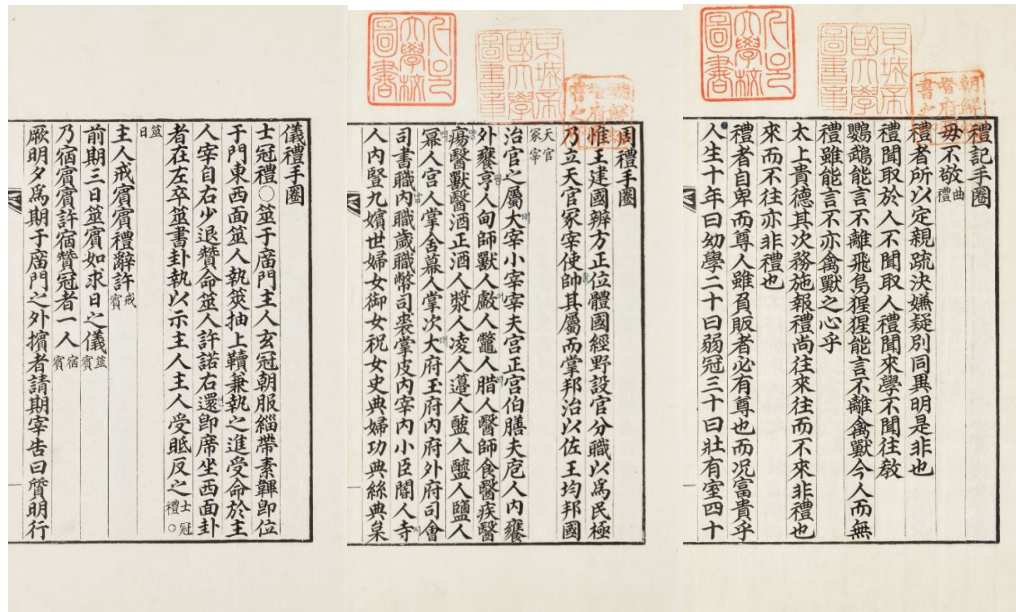 서울大學校圖書
京城帝國大學圖書章
朝鮮總督府圖書之印
禮記手圈
毋不敬曲禮
禮者所以定親疏決嫌疑別同異明是非也
禮聞取於人不聞取人禮聞來學不聞往敎
鸚鵡能言不離飛鳥猩猩能言不離禽獸今人而無
禮雖能言不亦禽獸之心乎
太上貴德其次務施報禮尚往來往而不來非禮也
來而不往亦非禮也
禮者自卑而尊人雖負販者必有尊也而况富貴乎
人生十年曰幼學二十曰弱冠三十曰壯有室四十
서울大學校圖書
京城帝國大學圖書章
朝鮮總督府圖書之印
周禮手圈
惟王建國辨方正位體國經野設官分職以爲民極
乃立天官冢宰使帥其屬而掌邦治以佐王均邦國
天官冢宰
治官之屬大宰小宰宰夫宮正宮伯膳夫庖人內饔
外饔亨人甸師獸人䱷人鼈人腊人醫師食醫疾醫
瘍醫獸醫酒正酒人漿人凌人籩人醢人醯人鹽人
冪人宮人掌舍幕人掌次大府玉府內府外府司會
司書職內職歲職幣司裘掌皮內宰內小臣閽人寺
人內豎九嬪世婦女御女祝女史典婦功典絲典枲
儀禮手圈
士冠禮○筮于廟門主人玄冠朝服緇帶素韠卽位
于門東西面筮人執筴抽上韇兼執之進受命於主
人宰自右少退贊命筮人許諾右還卽席坐西面卦
者在左卒筮書卦執以示主人主人受眡反之士冠禮○
筮日
主人戒賓賓禮辭許戒賓
前期三日筮賓如求日之儀筮賓
乃宿賓賓許宿贊冠者一人宿賓
厥明夕爲期于廟門之外擯者請期宰告曰質明行